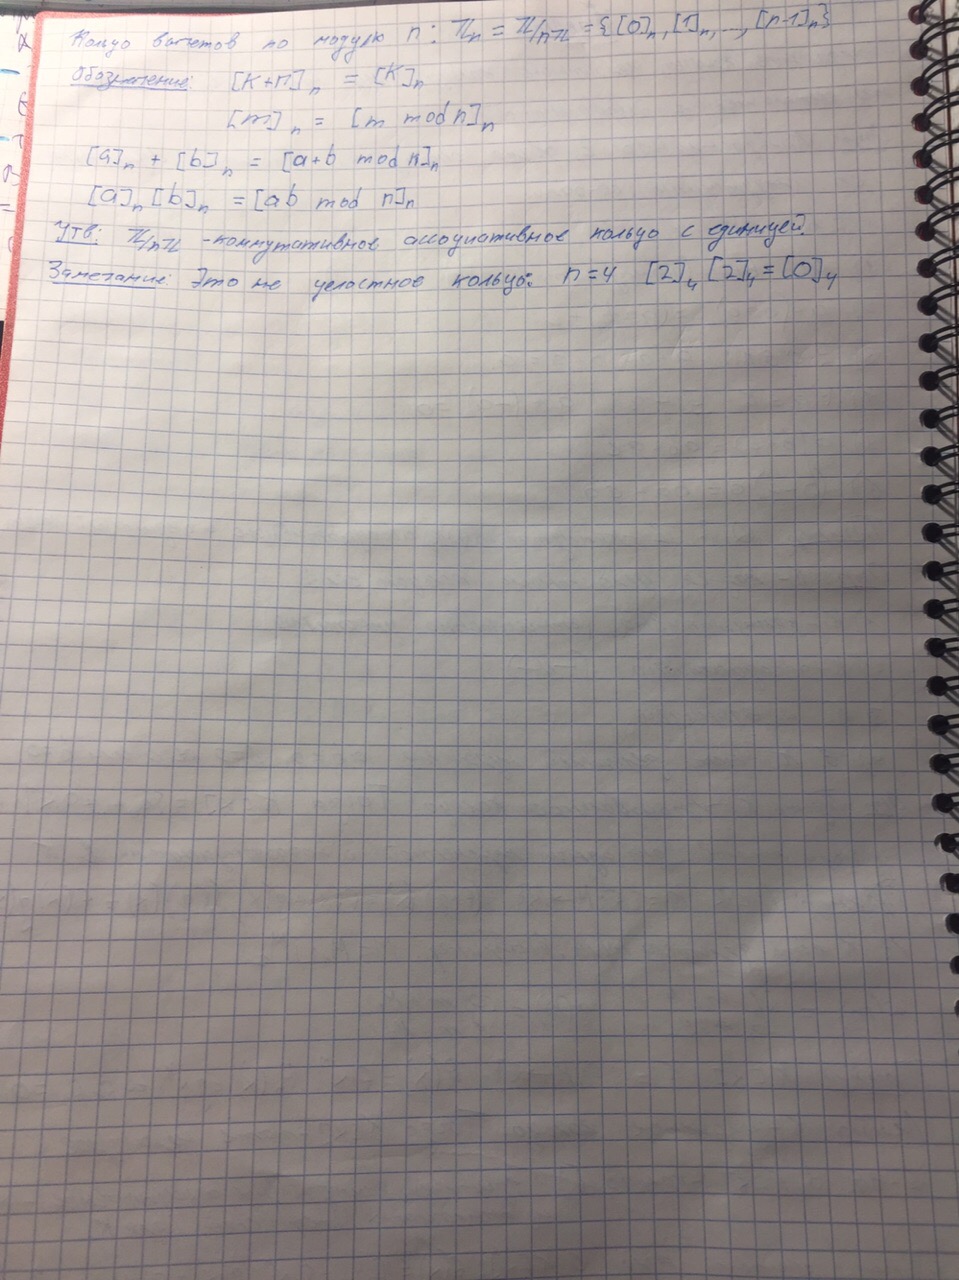 Кольцо вычетов по модулю n: ℤₙ = ℤ/nℤ = {[0]ₙ, [1]ₙ, ..., [n-1]ₙ}
Обозначение: [k+n]ₙ = [k]ₙ
[m]ₙ = [m mod n]ₙ
[a]ₙ + [b]ₙ = [a+b mod n]ₙ
[a]ₙ [b]ₙ = [ab mod n]ₙ
Утв: ℤ/nℤ - коммутативное ассоциативное кольцо с единицей.
Замечание: Это не целостное кольцо: n=4 [2]₄ [2]₄ = [0]₄